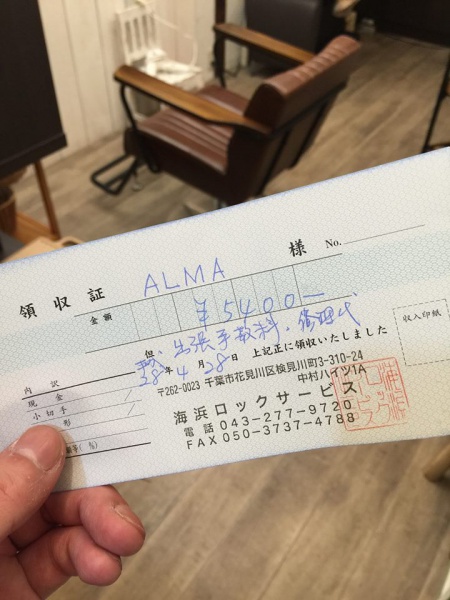 領収証
ALMA 様 No.
金額 ¥5400-
但 出張手数料・修理代
28年4月28日 上記正に領収いたしました
収入印紙
内訳
現金
小切手
形
額等(%)
〒262-0023 千葉市花見川区検見川町3-310-24
中村ハイツ1A
海浜ロックサービス
電話 043-277-9720
FAX 050-3737-4788